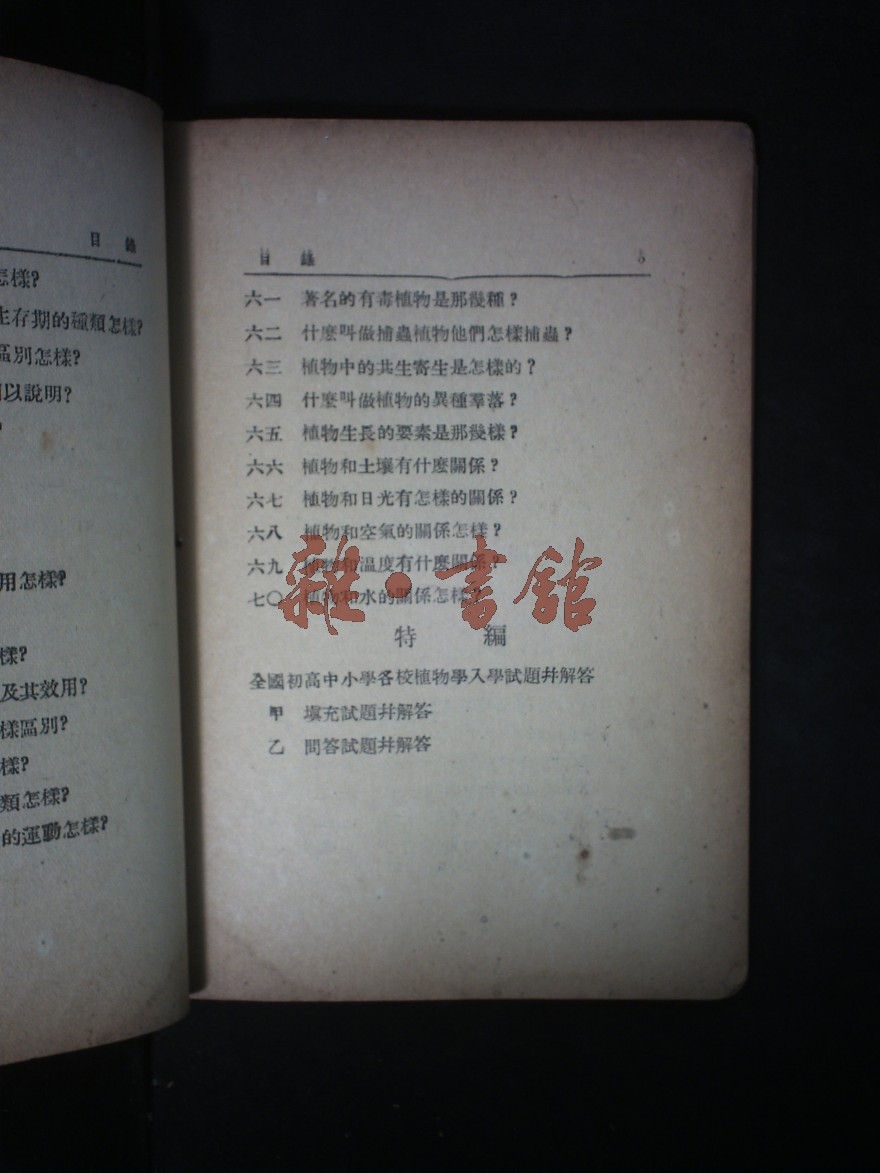 目 錄
怎樣?
生存期的種類怎樣?
區別怎樣?
以說明?
?
用怎樣?
樣?
及其效用?
樣區別?
樣?
類怎樣?
的運動怎樣?
目 錄 5
六一 著名的有毒植物是那幾種?
六二 什麼叫做捕蟲植物他們怎樣捕蟲?
六三 植物中的共生寄生是怎樣的?
六四 什麼叫做植物的異種羣落?
六五 植物生長的要素是那幾樣?
六六 植物和土壤有什麼關係?
六七 植物和日光有怎樣的關係?
六八 植物和空氣的關係怎樣?
六九 植物和溫度有什麼關係?
七〇 植物和水的關係怎樣?
雜·書館
特 編
全國初高中小學各校植物學入學試題幷解答
甲 填充試題幷解答
乙 問答試題幷解答